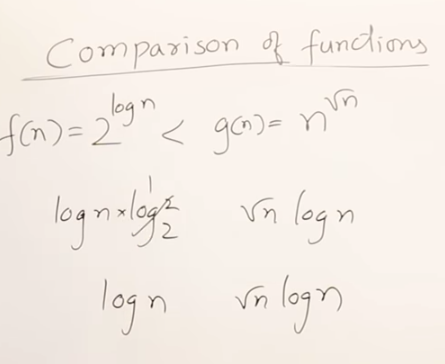 Comparison of functions
f(n) = 2^log n < g(n) = n^√n
log n × log₂2 1 √n log n
log n √n log n